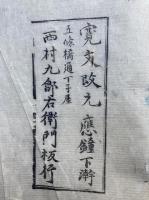 寛文改元 應鐘下澣
五條橋通下于屋
西村九郎右衛門板行